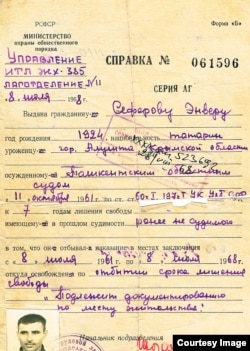 РСФСР
Форма «Б»
МИНИСТЕРСТВО
охраны общественного
порядка
СПРАВКА № 061596
Управление
ИТЛ ЖХ-385
Лаготделение №11
СЕРИЯ АГ
8 июля 1968 г.
Выдана гражданину Сеферову Энверу
год рождения 1924, национальность татарин
уроженцу гор. Алушта Крымской области
осужденному Ташкентским областным
судом
"11" октября 1961 г. по ст. ст. УК Уз ССР
к 7 годам лишения свободы
имеющему в прошлом судимости ранее не судимого
в том, что он отбывал наказание в местах заключения
с 8 июля 1961 г. по 8 июля 1968 г.
откуда освобожден по отбытии срока лишения
свободы
Подлежит документированию
по месту жительства
Начальник подразделения
Courtesy Image